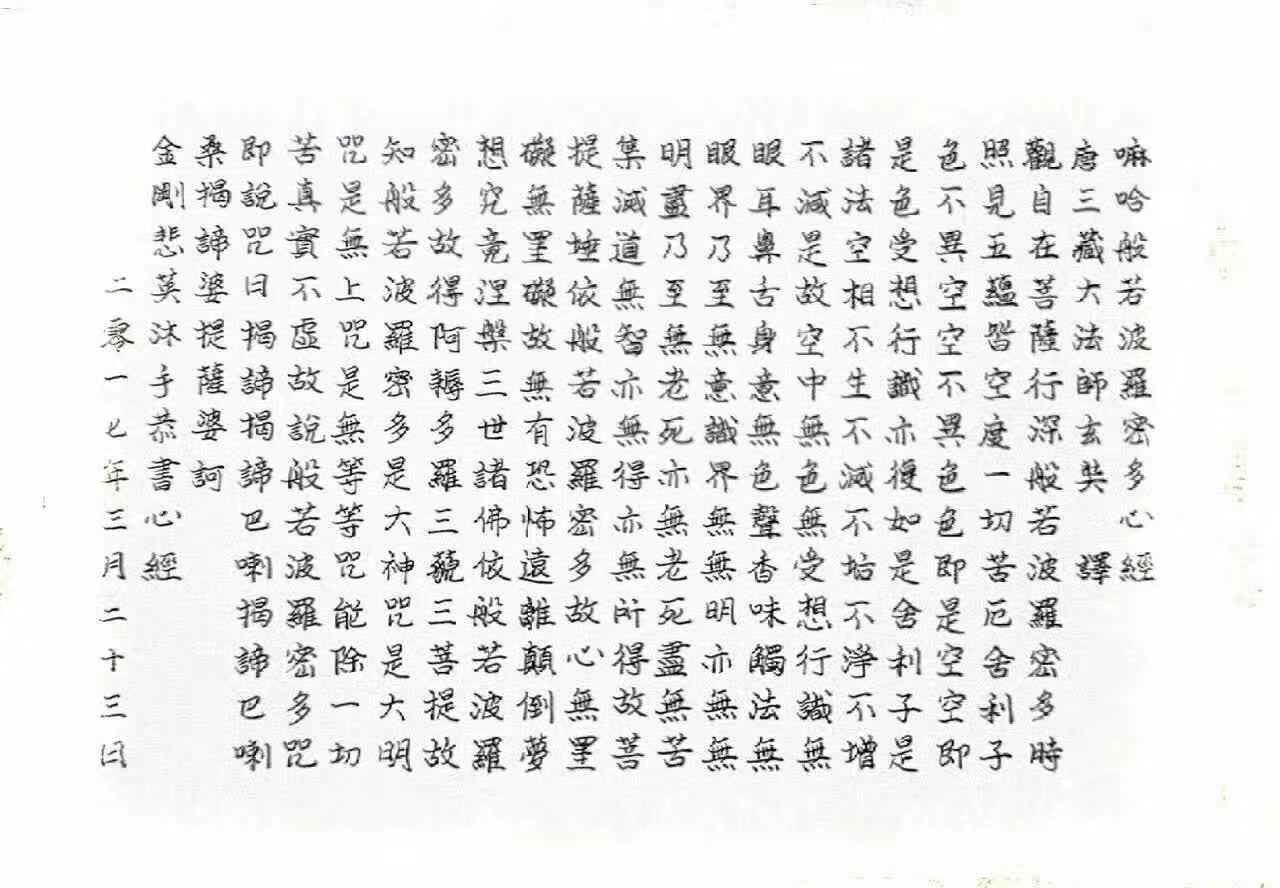 嘛哈般若波羅密多心經
唐三藏大法師玄奘 譯
觀自在菩薩行深般若波羅密多時
照見五蘊皆空度一切苦厄舍利子
色不異空空不異色色即是空空即
是色受想行識亦復如是舍利子是
諸法空相不生不滅不垢不淨不增
不減是故空中無色無受想行識無
眼耳鼻舌身意無色聲香味觸法無
眼界乃至無意識界無無明亦無無
明盡乃至無老死亦無老死盡無苦
集滅道無智亦無得亦無所得故菩
提薩埵依般若波羅密多故心無罣
礙無罣礙故無有恐怖遠離顛倒夢
想究竟涅槃三世諸佛依般若波羅
密多故得阿耨多羅三藐三菩提故
知般若波羅密多是大神咒是大明
咒是無上咒是無等等咒能除一切
苦真實不虛故說般若波羅密多咒
即說咒曰揭諦揭諦 巴喇揭諦巴喇
桑揭諦婆提薩婆訶
金剛悲英沐手恭書心經
二零一七年三月二十三日